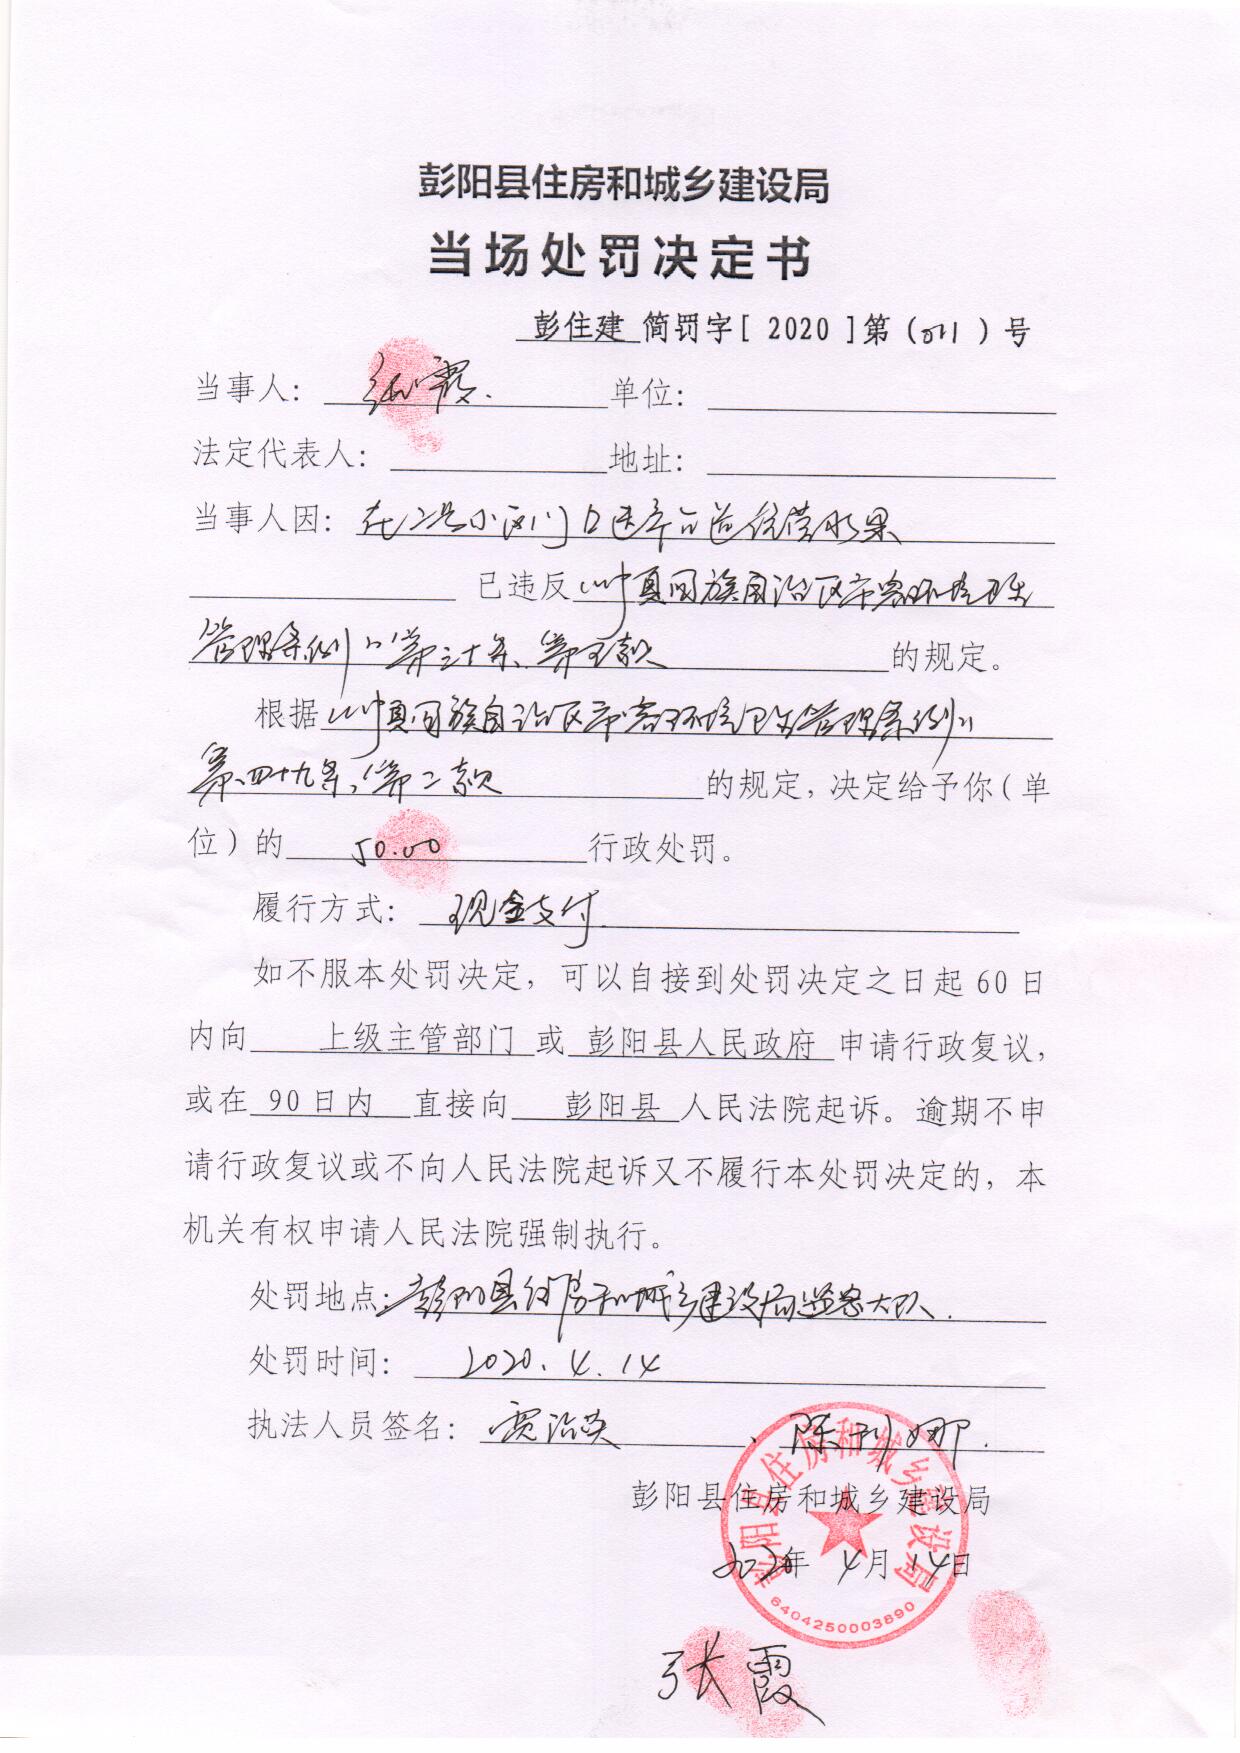 彭阳县住房和城乡建设局
当场处罚决定书
彭住建 简罚字[ 2020 ]第（011）号
当事人： 张霞. 单位：
法定代表人： 地址：
当事人因：在二号小区门口违章占道经营水果
已违反《宁夏回族自治区市容环境卫生
管理条例》第三十条、第五款 的规定。
根据《宁夏回族自治区市容环境卫生管理条例》
第四十九条，第二款 的规定，决定给予你（单
位）的 50.00 行政处罚。
履行方式： 现金支付.
如不服本处罚决定，可以自接到处罚决定之日起60日
内向 上级主管部门 或 彭阳县人民政府 申请行政复议，
或在 90日内 直接向 彭阳县 人民法院起诉。逾期不申
请行政复议或不向人民法院起诉又不履行本处罚决定的，本
机关有权申请人民法院强制执行。
处罚地点：彭阳县住房和城乡建设局监察大队.
处罚时间： 2020.4.14
执法人员签名： 贾治英 、陈利娜.
彭阳县住房和城乡建设局
2020年 4月14日
彭阳县住房和城乡建设局
6404250003890
张霞